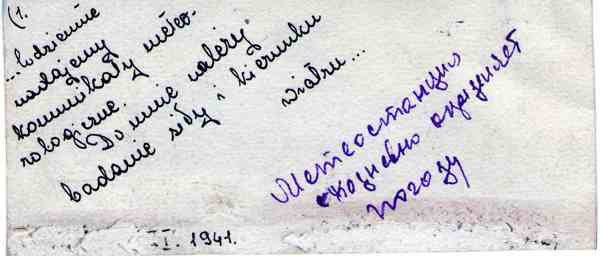 (1.
...codziennie
nadajemy
komunikaty meteo-
rologiczne.
Do mnie należy
badanie siły i kierunku
wiatru...
Метеостанция
ежедневно определяет
погоду
I. 1941.